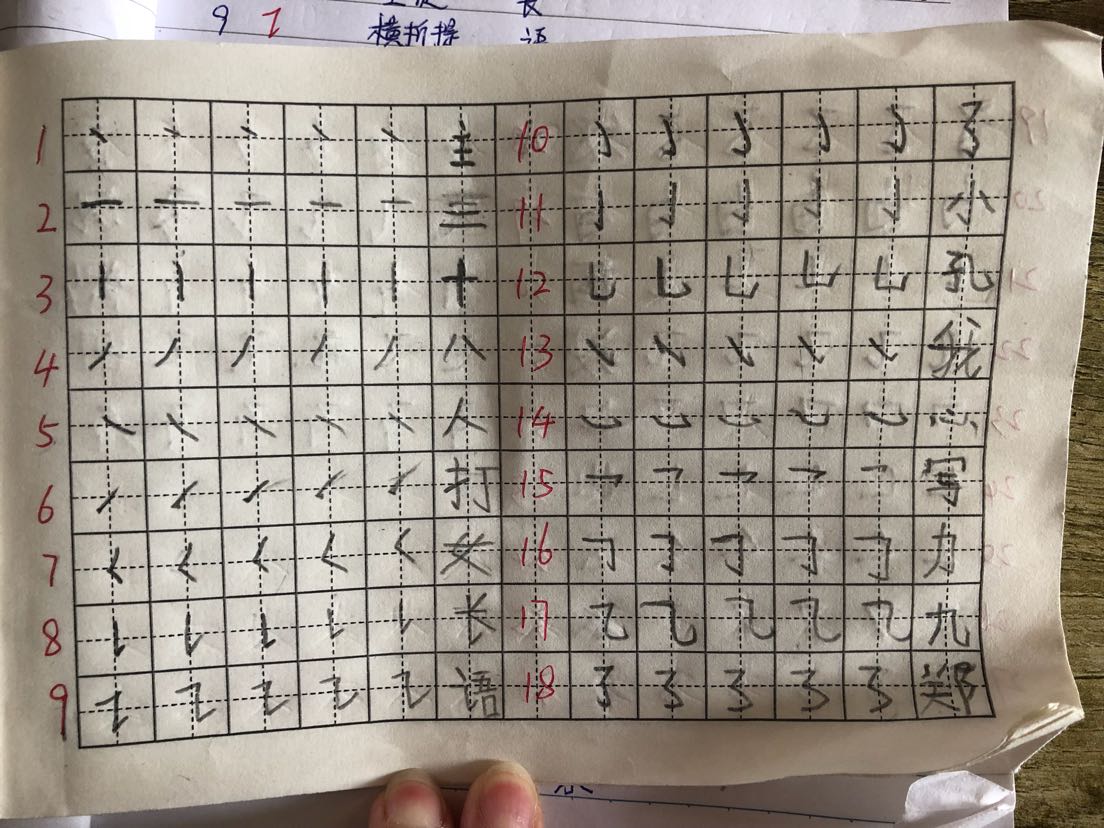 9 ㇊ 横折提 语
1 丶 丶 丶 丶 丶 主 10 ㇁ ㇁ ㇁ ㇁ ㇁ 了
2 一 一 一 一 一 三 11 亅 亅 亅 亅 亅 小
3 丨 丨 丨 丨 丨 十 12 乚 乚 乚 乚 乚 孔
4 丿 丿 丿 丿 丿 八 13 ㇂ ㇂ ㇂ ㇂ ㇂ 我
5 ㇏ ㇏ ㇏ ㇏ ㇏ 人 14 ㇃ ㇃ ㇃ ㇃ ㇃ 心
6 ㇀ ㇀ ㇀ ㇀ ㇀ 打 15 ㇖ ㇖ ㇖ ㇖ ㇖ 写
7 ㇛ ㇛ ㇛ ㇛ ㇛ 女 16 ㇆ ㇆ ㇆ ㇆ ㇆ 力
8 ㇙ ㇙ ㇙ ㇙ ㇙ 长 17 ㇈ ㇈ ㇈ ㇈ ㇈ 九
9 ㇊ ㇊ ㇊ ㇊ ㇊ 语 18 ㇌ ㇌ ㇌ ㇌ ㇌ 郑